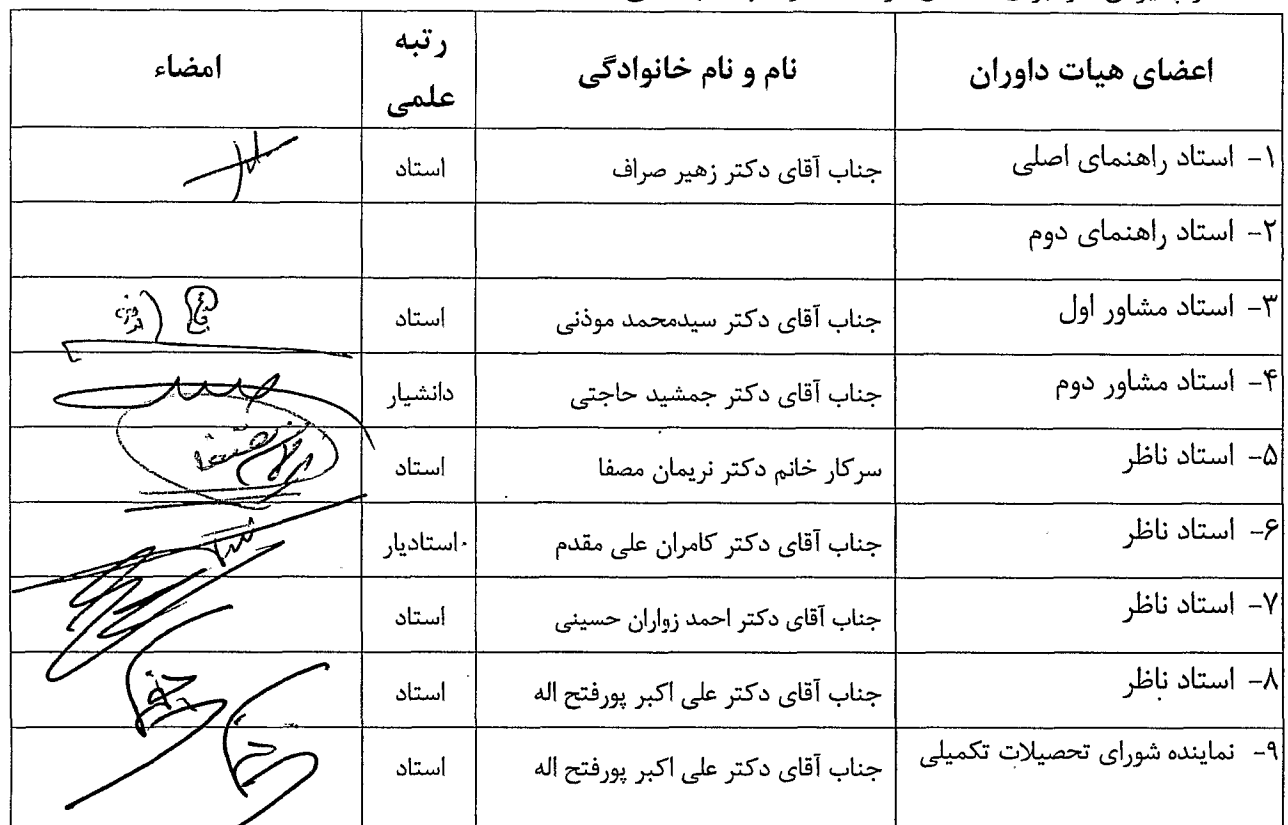 اعضای هیات داوران نام و نام خانوادگی رتبه علمی امضاء
۱- استاد راهنمای اصلی جناب آقای دکتر زهیر صراف استاد
۲- استاد راهنمای دوم
۳- استاد مشاور اول جناب آقای دکتر سیدمحمد موذنی استاد
۴- استاد مشاور دوم جناب آقای دکتر جمشید حاجتی دانشیار
۵- استاد ناظر سرکار خانم دکتر نریمان مصفا استاد
۶- استاد ناظر جناب آقای دکتر کامران علی مقدم استادیار
۷- استاد ناظر جناب آقای دکتر احمد زواران حسینی استاد
۸- استاد ناظر جناب آقای دکتر علی اکبر پورفتح اله استاد
۹- نماینده شورای تحصیلات تکمیلی جناب آقای دکتر علی اکبر پورفتح اله استاد